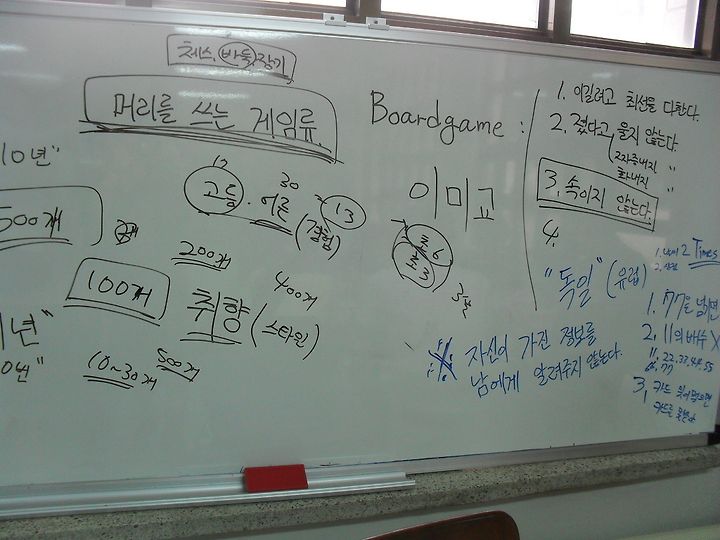 체스, 바둑, 장기
머리를 쓰는 게임류.
10년"
12
고등.
30
어른
13
(경험)
500개
200개
100개
취향 (스타일)
400개
년"
0년"
10~30개
500개
Boardgame :
이미교
초6
초3
1. 이길려고 최선을 다한다.
2. 졌다고 울지 않는다
화내진 "
3. 속이지 않는다.
4.
"독일" (유럽)
※ 자신이 가진 정보를
남에게 알려주지 않는다.
1.
2 Times
2.
1. 77을 넘기면
2. 11의 배수 X
11, 22. 33. 44. 55
66, 77
3, 카드